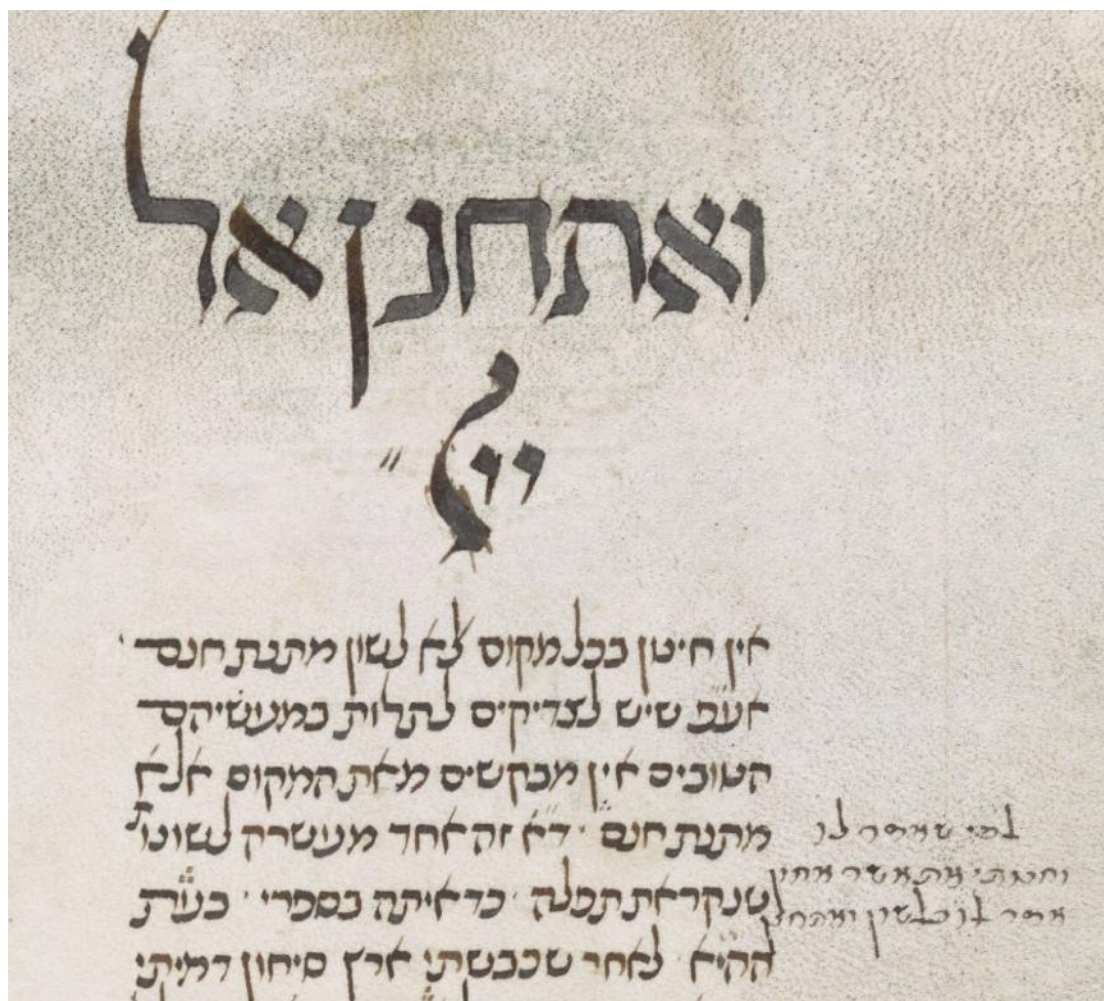 ואתחנן אל
יי״
אין חינון בכל מקום אלא לשון מתנת חנם
אע״פ שיש לצדיקים לתלות במעשיהם
הטובים אין מבקשים מאת המקום אלא
מתנת חנם · ד״א זה אחד מעשרה לשונות
שנקראת תפלה · כדאיתה בספרי · בעת
ההיא · לאחר שכבשתי ארץ סיחון דמיתי
לפי שאמר לו
וחנותי את אשר אחון
אמר לו בלשון ואתחנן